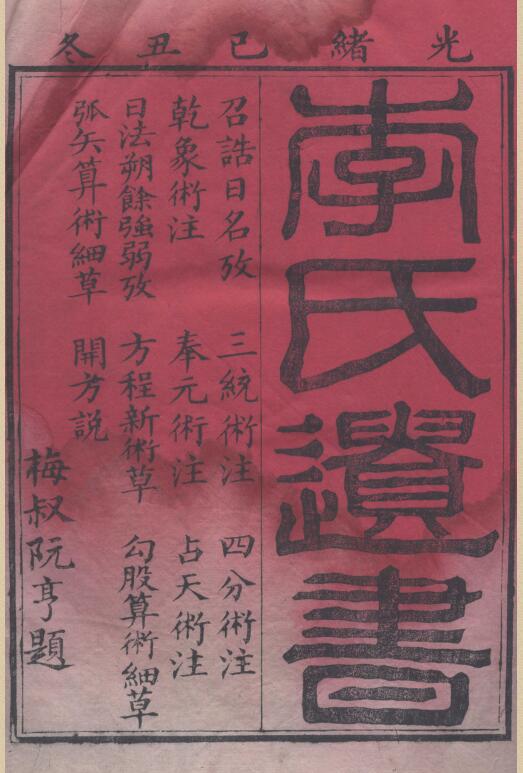 光緒己丑冬
李氏遺書
召誥日名攷 三統術注 四分術注
乾象術注 奉元術注 占天術注
日法朔餘強弱攷 方程新術草 勾股算術細草
弧矢算術細草 開方説
梅叔阮亨題